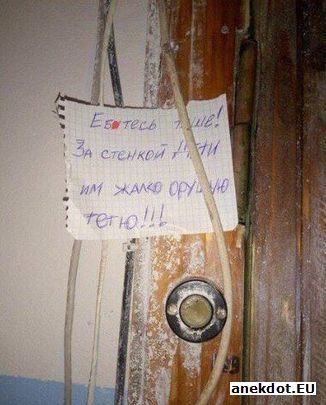 Ебтесь тише!
За стенкой дети
им жалко орущую
тётю!!!
anekdot.EU